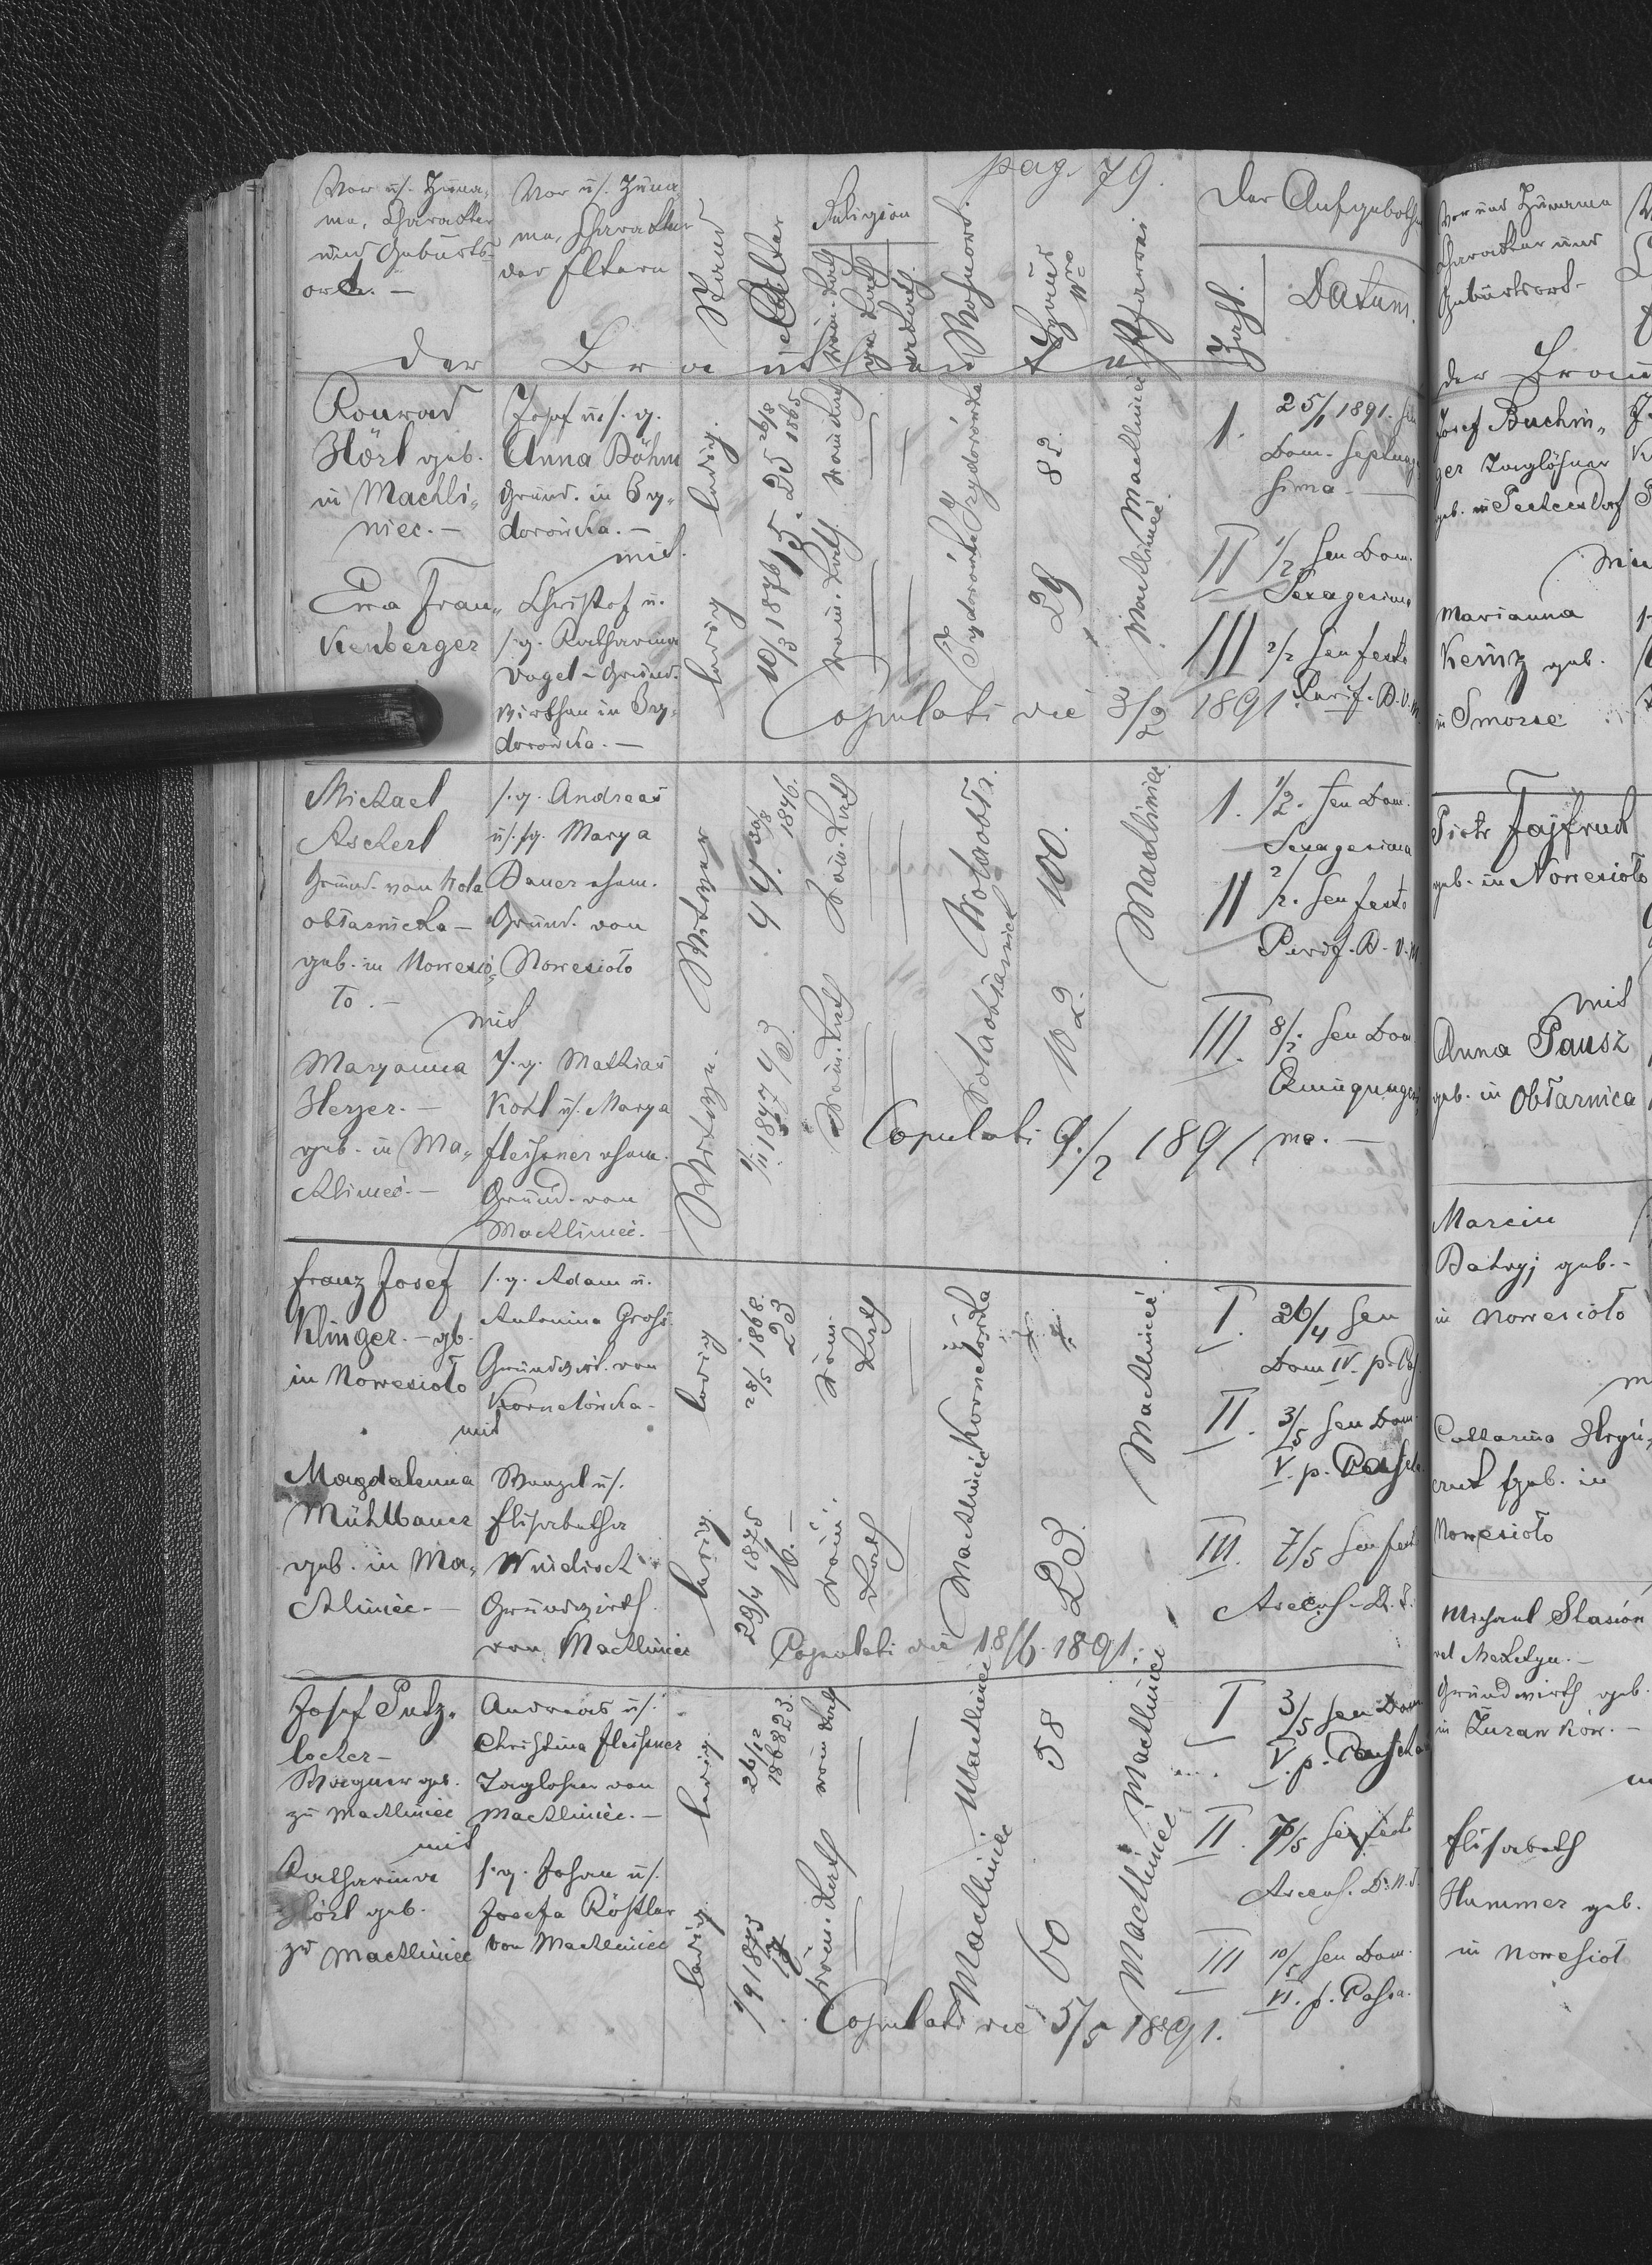 pag. 79.
Vor u. Zuna-
me, Charakter
und Geburts-
ort. —
Vor u. Zuna
me, Charakter
der Eltern
Stand
Alter
Religion
Wohnort
Haus
Nro
Pfarrei
Der Aufgebothe
Zahl.
Datum.
der Brautleute
Konrad
Hörl geb.
in Machli-
niec. —
Josef u. s. g.
Anna Böhm
Grund. in Izy-
dorówka. —
ledig.
25 26/8 1865
röm. kath.
Izydorówka
82.
Machliniec
1. 25/1 1891. sen
Dom. Septuage
sima —
mit
Ewa Fran-
kenberger
Christof u.
s. g. Katharina
Vogel - Grund-
wirthen in Izy-
dorówka. —
ledig
10/3 1876 15.
röm. kath.
Izydorówka
29
Machliniec
II 1/2 sen Dom.
Sexagesima
III 2/2 sen festo
Purif. B.V.M
Copulati die 3/2 1891
Michael
Ascherl
Grund. von Wola
obłaznicka —
geb. in Nowesio-
ło. —
s. g. Andreas
u. s. g. Marya
Bauer ehem.
Grund. von
Nowesioło
Witwer
44. 30/8 1846.
röm. kath
Wola obłaznick
100.
Machliniec
1. 1/2. sen Dom.
Sexagesima
II 2/2. sen festo
Purif. B.V.M
mit
Maryanna
Herzer. —
geb. in Ma-
chliniec. —
s. g. Mathias
Kohl u. Marya
Fleissner ehem.
Grund. von
Machliniec.
Witwe.
1/11 1847 43.
röm. kath
Wola obłaznick
102.
III. 8/2 sen Dom
Quinquagesi
ma. —
Copulati 9./2 1891
Franz Josef
Klinger. — gb.
in Nowesioło
s. g. Adam u.
Antonina Gross
Grundwirt. von
Kornelówka —
ledig
28/5 1868.
23
röm.
kath
Kornelówka
Machliniec
I. 26/4 sen
Dom IV. p. Pas
II. 3/5 sen Dom
V. p. Pascha
mit
Magdalenna
Mühlbauer
geb. in Ma-
chliniec. —
Wenzel u.
Elisabetha
Windisch
Grundwirth
von Machliniec
ledig
29/4 1875
16. —
röm.
kath
Machliniec
23.
III. 7/5 sen fest
Ascens. D.
Copulati die 18/6. 1891.
Josef Putz-
locher —
Wagner geb.
zu Machliniec
Andreas u.
Christina Fleissner
Taglöhner von
Machliniec. —
ledig
26/12
1868 23.
röm kath
Machliniec
58
Machliniec
I 3/5 sen Dom
V. p. Pascha
mit
Katharina
Hörl geb.
zu Machliniec
s. g. Johan u.
Josefa Rössler
von Machliniec
ledig.
1/9 1873
17
röm. kath
Machliniec
60
Machliniec
II. 7/5 sen festo
Ascens. D.N.
III 10/5 sen Dom.
VI. p. Pascha.
Copulati die 5/5 1891.
Vor und Zuname
Charakter und
Geburtsort —
der Brau
Josef Buchin-
ger Taglöhner
geb. in Petersdorf
Marianna
Keinz geb.
in Smorze
Piotr Fajfrud
geb. in Nowesioło
mit
Anna Pausz
geb. in Obłaznica
Marcin
Batryj geb. -
in Nowesioło
geb. in
Nowesioło
Grundwirth geb.
in Zurawków. —
Elisabeth
Hammer geb.
in Nowesioł